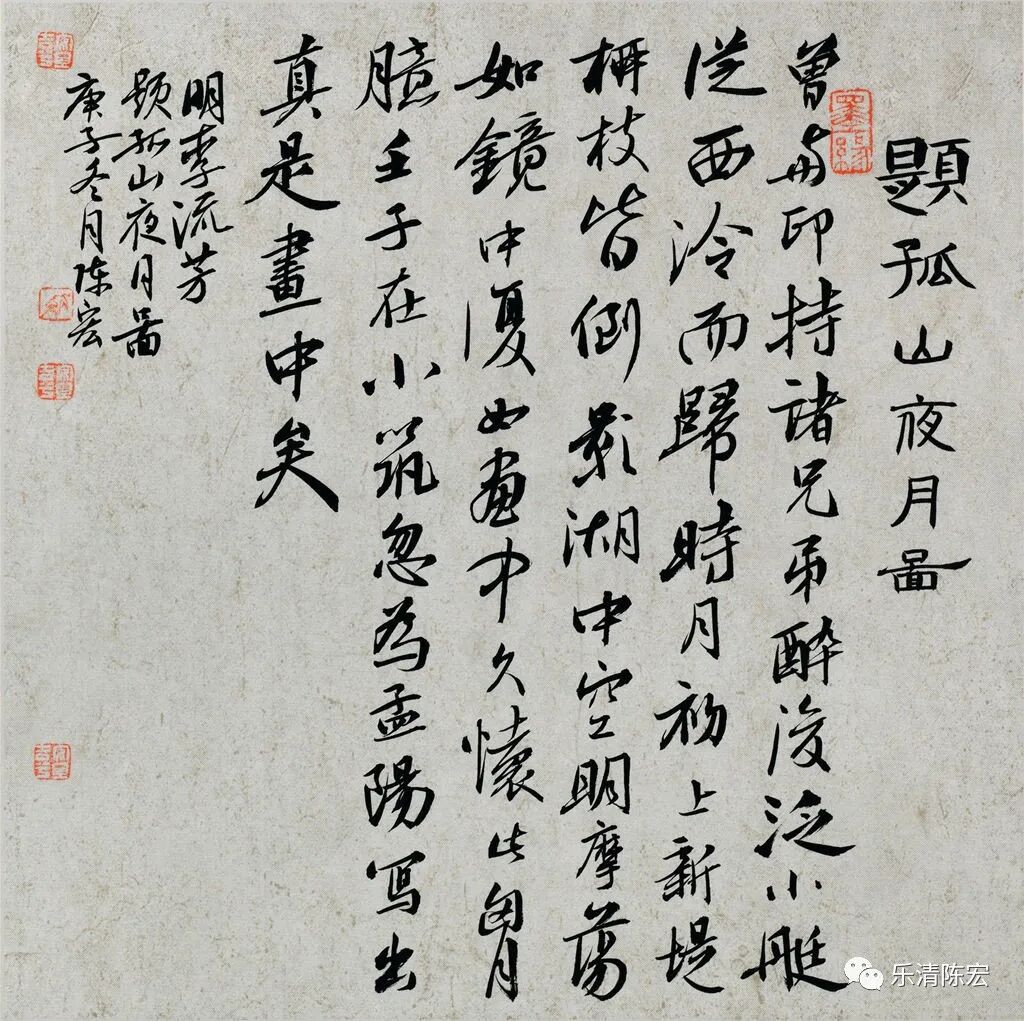 題孤山夜月圖
曾與印持諸兄弟醉後泛小艇
從西泠而歸時月初上新堤
柳枝皆倒影湖中空明摩蕩
如鏡中復如畫中久懷此胷
臆壬子在小筑忽為孟陽寫出
真是畫中矣
明李流芳
題孤山夜月圖
庚子冬月陈宏
乐清陈宏